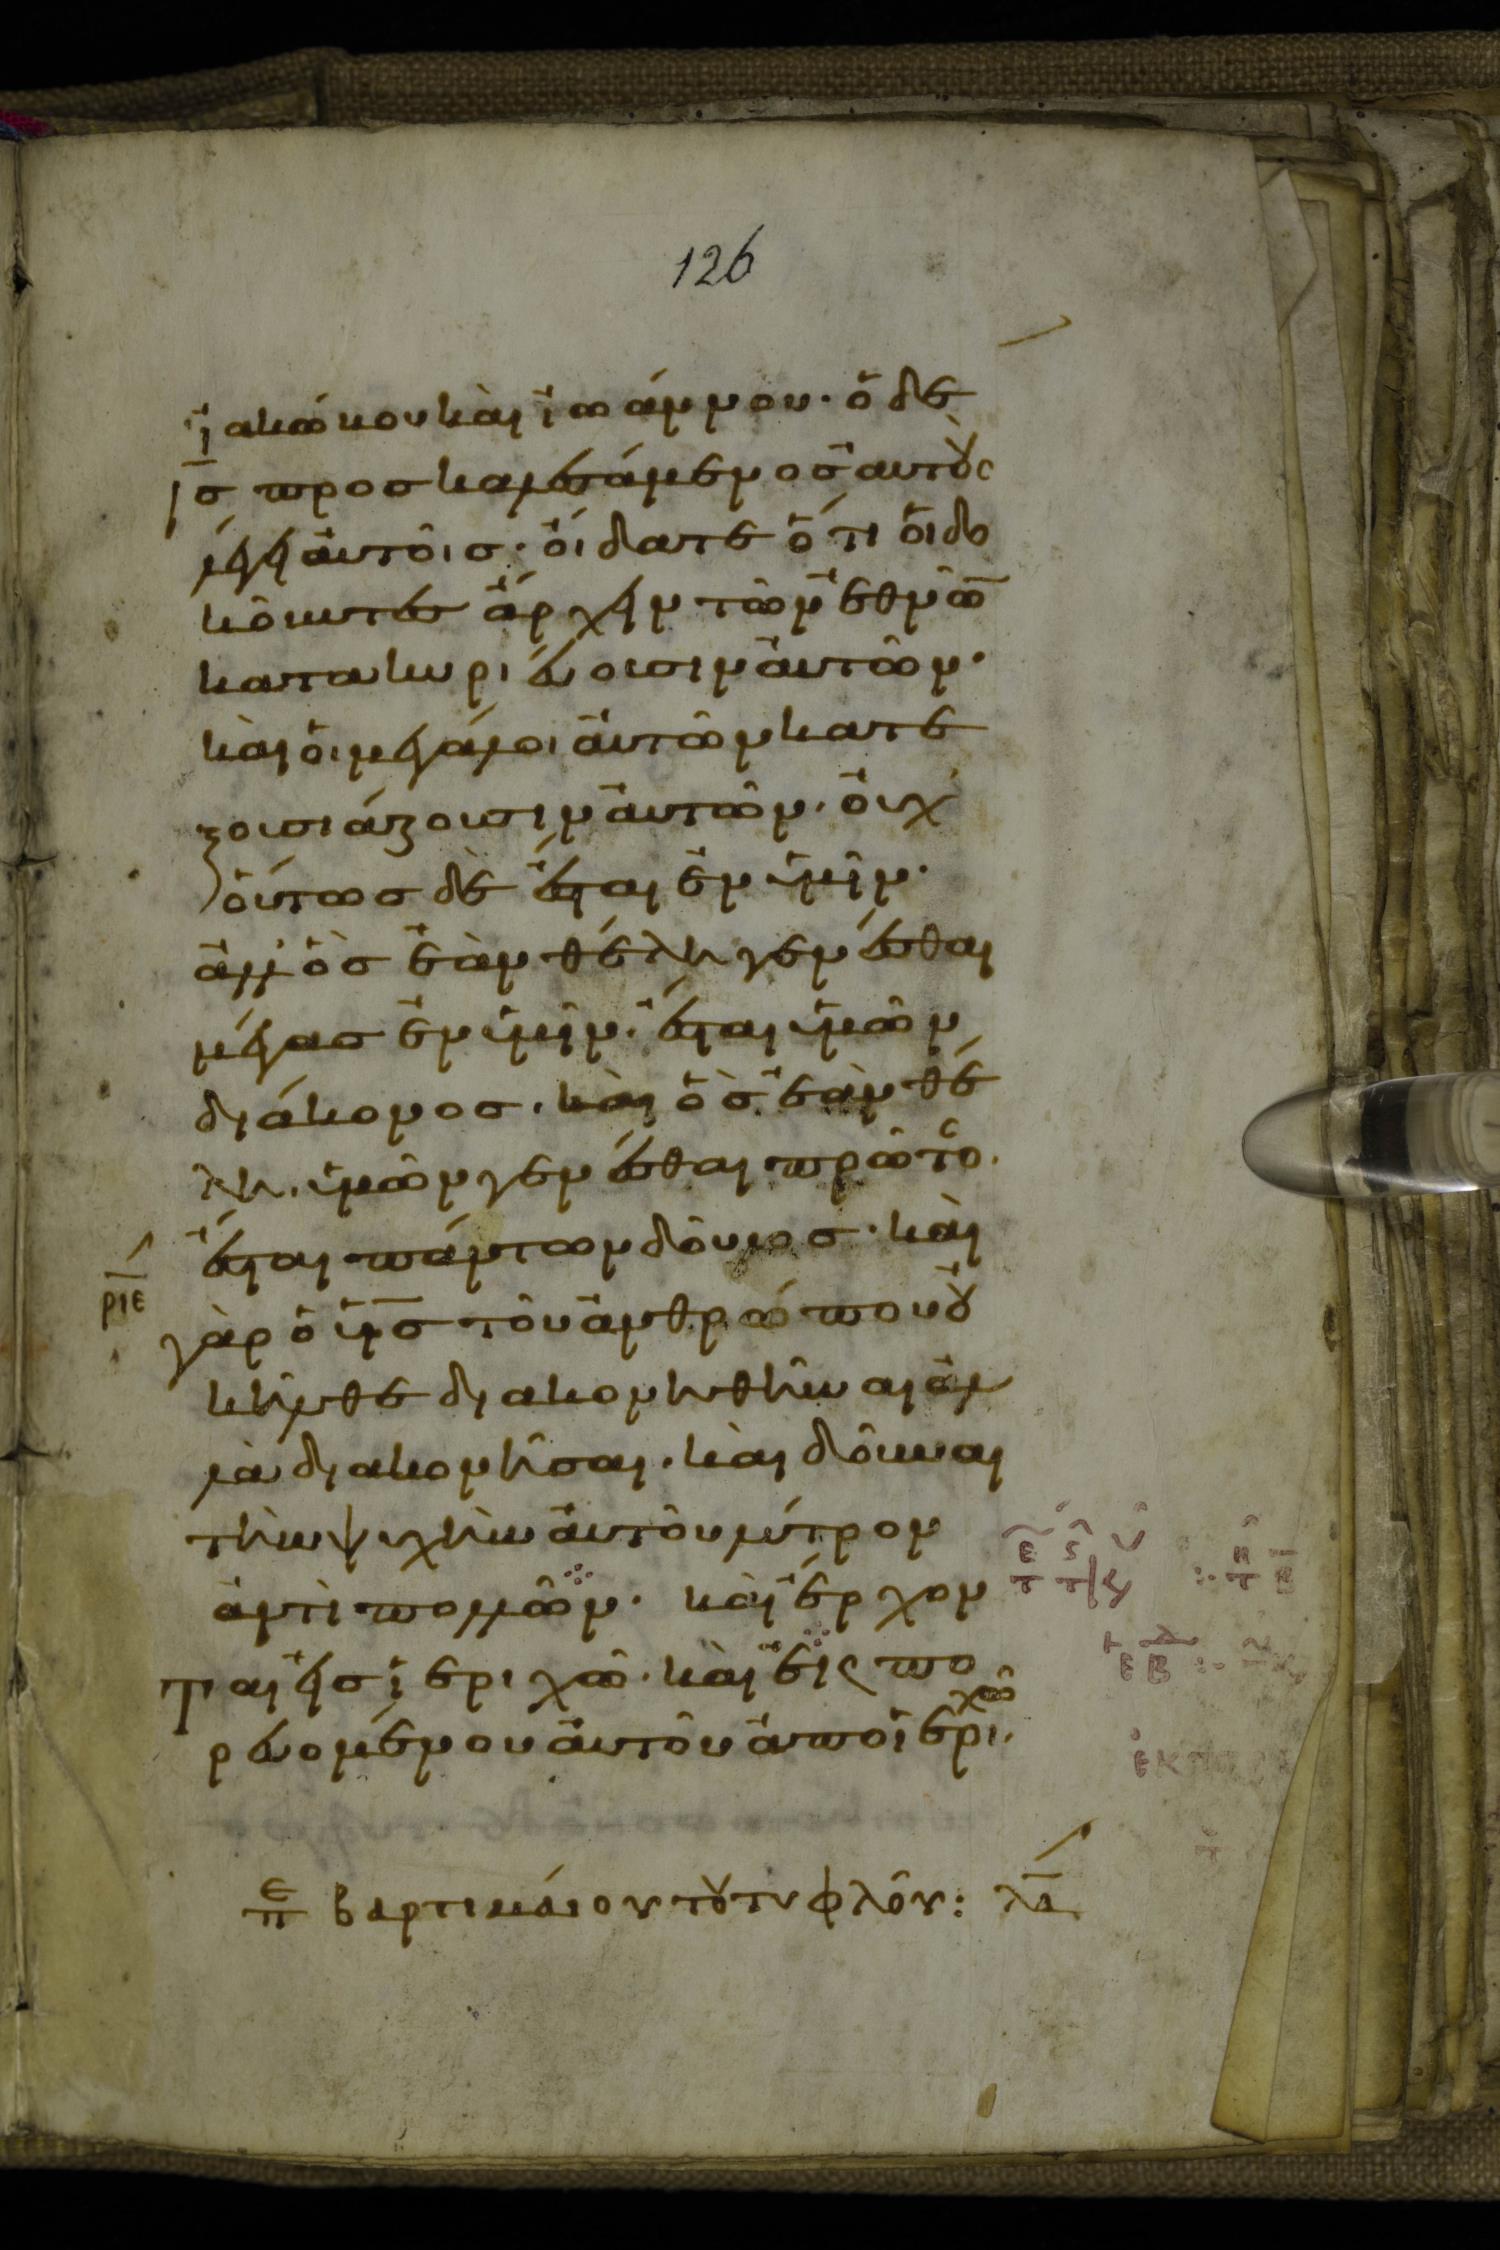 126
ἰακώβου καὶ ἰωάννου· ὁ δὲ
ις προσκαλεσάμενος αὐτοὺς
λέγει αὐτοῖς· οἴδατε ὅτι οἱ δο
κοῦντες ἄρχειν τῶν ἐθνῶ̅
κατακυριεύουσιν αὐτῶν·
καὶ οἱ μεγάλοι αὐτῶν κατε
ξουσιάζουσιν αὐτῶν· οὐχ
οὕτως δὲ ἔσται ἐν ὑμῖν·
ἀλλ' ὃς ἐὰν θέλη γενέσθαι
μέγας ἐν ὑμῖν· ἔσται ὑμῶν
διάκονος· καὶ ὃς ἐὰν θέ
λη· ὑμῶν γενέσθαι πρῶτο·
ἔσται πάντων δοῦλος· καὶ
ριε
γὰρ ὁ υἱς τοῦ ἀνθρώπου οὐ
κ ἦλθε διακονηθῆναι ἀλ
λὰ διακονῆσαι· καὶ δοῦναι
τὴν ψυχὴν αὐτοῦ λύτρον
ἀντὶ πολλῶν· καὶ ἔρχον
ται εἰς ἰεριχῶ· καὶ εἰς πο
ρευομένου αὐτοῦ ἀπὸ ἰεριχῶ·
πε βαρτιμαίου τοῦ τυφλοῦ: λα